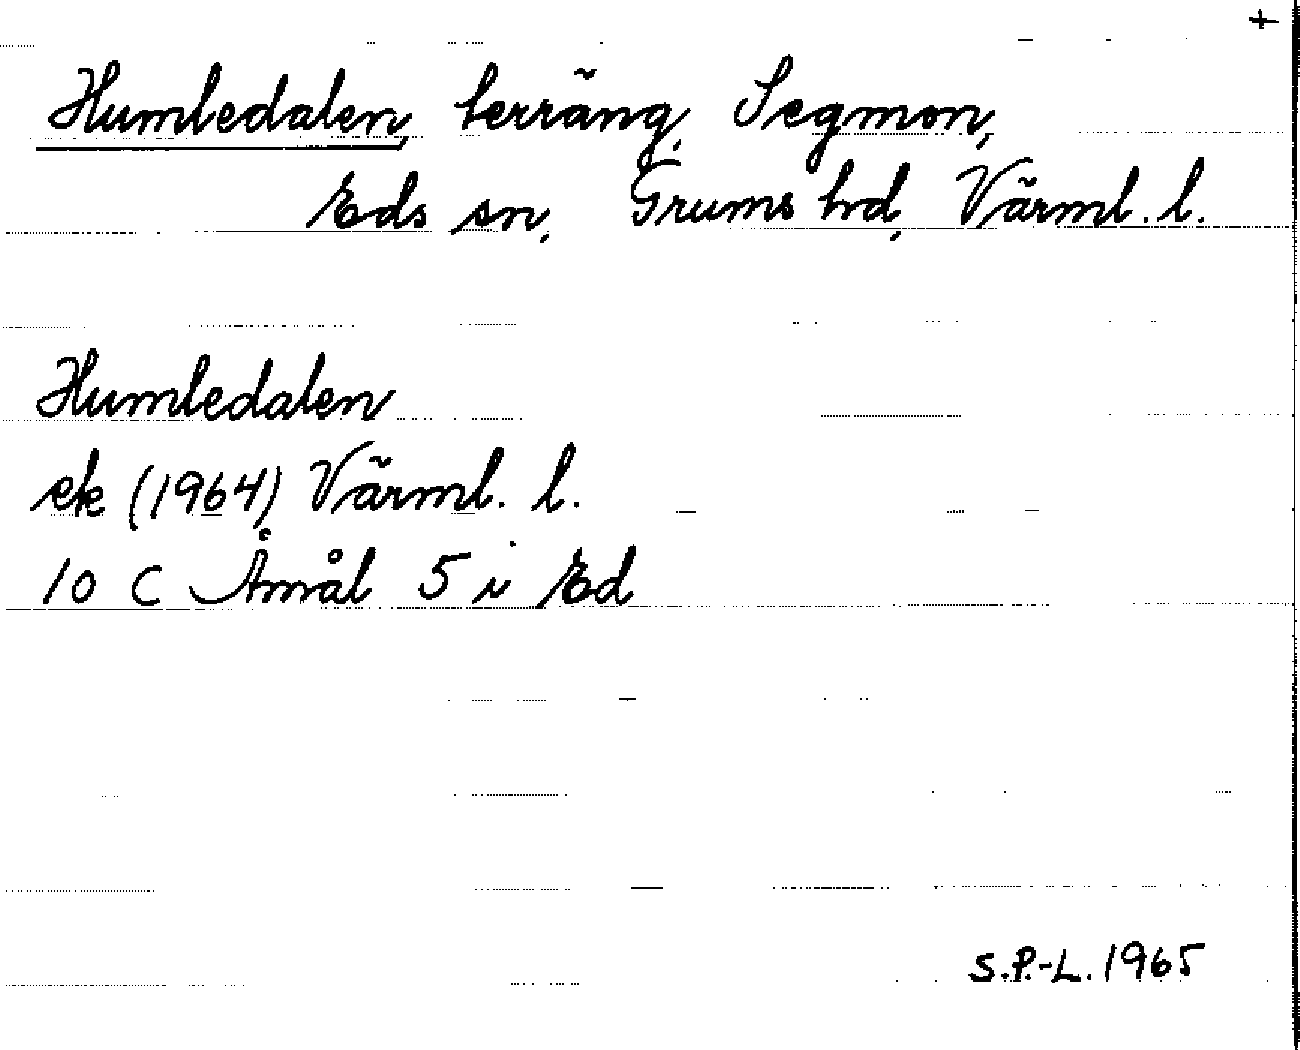 +
Humledalen, terräng, Segmon,
Eds sn, Grums hd, Värml. l.
Humledalen
ek (1964) Värml. l.
10 C Åmål 5 i Ed
S.P.-L. 1965